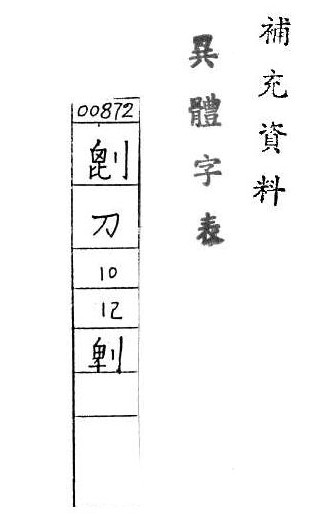 補充資料
異體字表
00872
刀
10
12